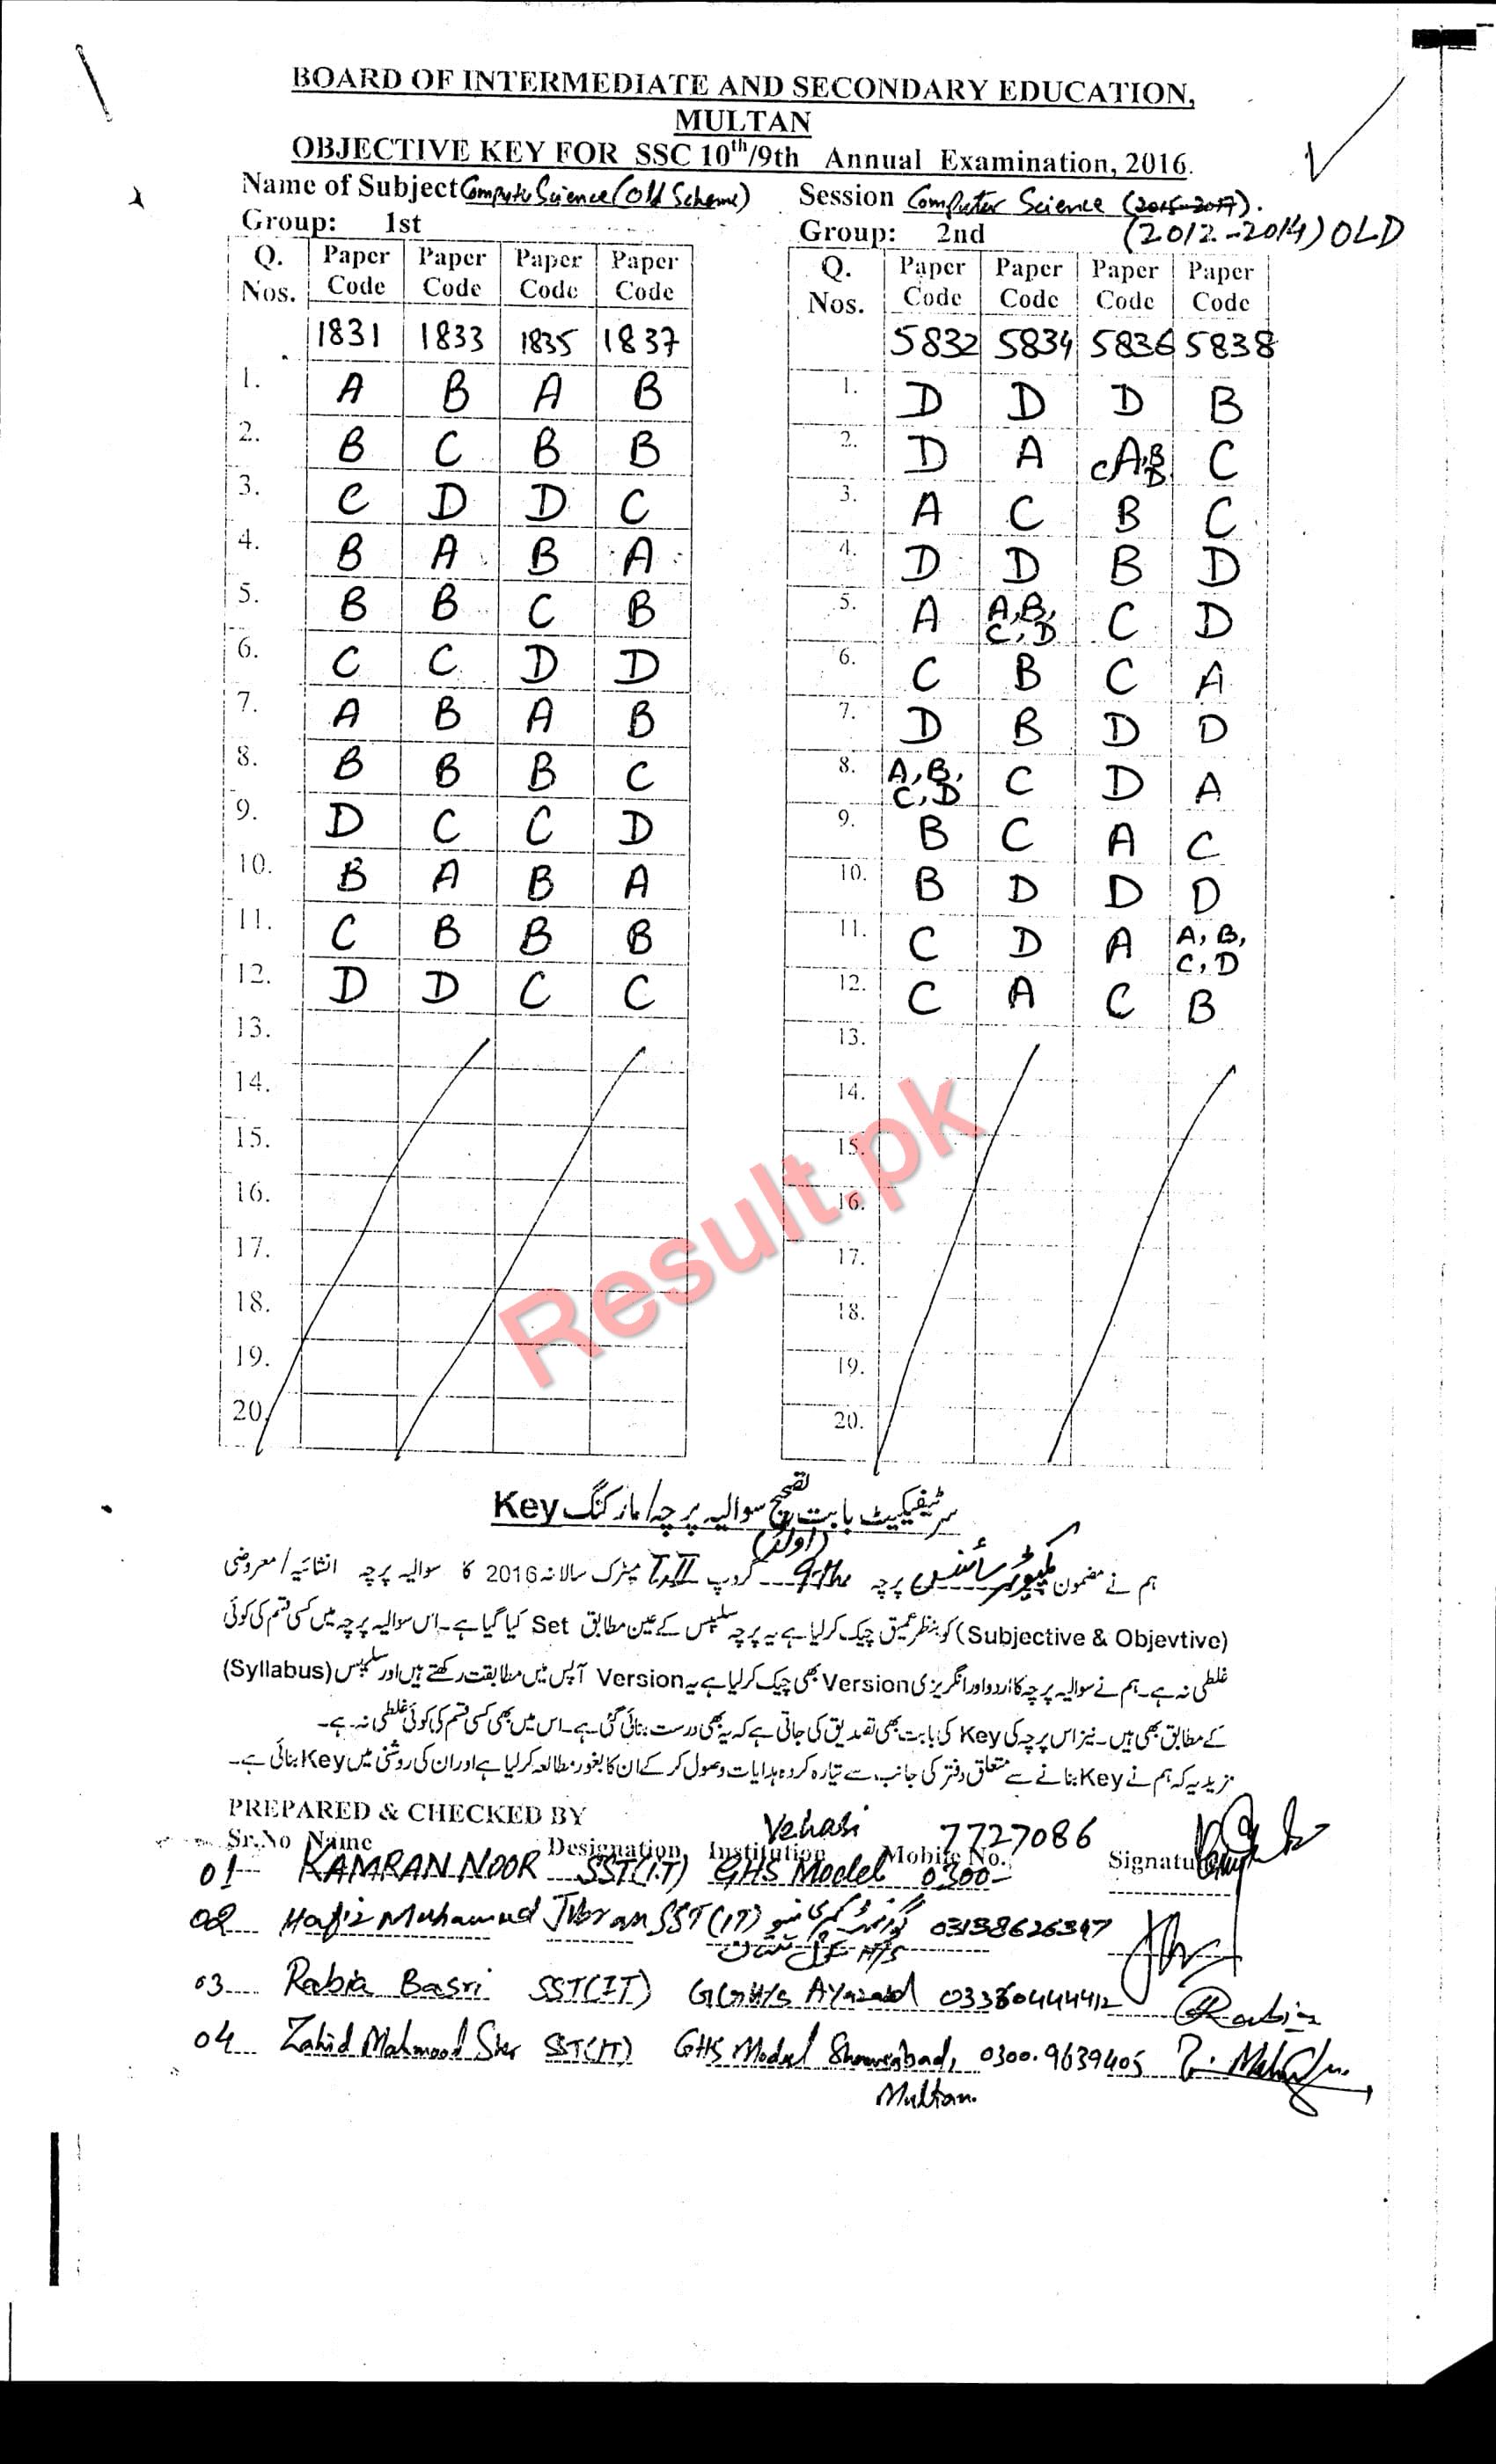 BOARD OF INTERMEDIATE AND SECONDARY EDUCATION,
MULTAN
OBJECTIVE KEY FOR SSC 10th/9th Annual Examination, 2016.
Name of Subject Computer Science (Old Scheme)
Group: 1st
Session Computer Science (2015-2017).
Group: 2nd (2012-2014) OLD
Q. Nos. Paper Code Paper Code Paper Code Paper Code
1831 1833 1835 1837
1. A B A B
2. B C B B
3. C D D C
4. B A B A
5. B B C B
6. C C D D
7. A B A B
8. B B B C
9. D C C D
10. B A B A
11. C B B B
12. D D C C
13.
14.
15.
16.
17.
18.
19.
20.
Q. Nos. Paper Code Paper Code Paper Code Paper Code
5832 5834 5836 5838
1. D D D B
2. D A A,B C D C
3. A C B C
4. D D B D
5. A A,B, C,D C D
6. C B C A
7. D B D D
8. A,B, C,D C D A
9. B C A C
10. B D D D
11. C D A A,B, C,D
12. C A C B
13.
14.
15.
16.
17.
18.
19.
20.
Result.pk
سرٹیفکیٹ بابت تصحیح سوالیہ پرچہ/مارکنگ Key
(اولڈ)
ہم نے مضمون کمپیوٹر سائنس پرچہ 9th گروپ I,II میٹرک سالانہ 2016 کا سوالیہ پرچہ انشائیہ/معروضی
(Subjective & Objevtive) کو بنظر عمیق چیک کرلیا ہے یہ پرچہ سلیبس کے عین مطابق Set کیا گیا ہے۔ اس سوالیہ پرچہ میں کسی قسم کی کوئی
غلطی نہ ہے۔ ہم نے سوالیہ پرچہ کا اردو اور انگریزی Version بھی چیک کرلیا ہے یہ Version آپس میں مطابقت رکھتے ہیں اور سلیبس (Syllabus)
کے مطابق بھی ہیں۔ نیز اس پرچہ کی Key کی بابت بھی تصدیق کی جاتی ہے کہ یہ بھی درست بنائی گئی ہے۔ اس میں بھی کسی قسم کی کوئی غلطی نہ ہے۔
مزید یہ کہ ہم نے Key بنانے سے متعلق دفتر کی جانب سے تیار کردہ ہدایات وصول کر کے ان کا بغور مطالعہ کرلیا ہے اور ان کی روشنی میں Key بنائی ہے۔
PREPARED & CHECKED BY
Sr.No Name Designation Institution Mobile No. Signature
01 KAMRAN NOOR SST(I.T) GHS Model Vehari 0300-7727086
02 Hafiz Muhammad Jibran SST(IT) 03138626347
03 Rabia Basri SST(IT) 03360444412 Rabia
04 Zahid Mahmood SST(IT) GHS Model Multan. 0300.9639405